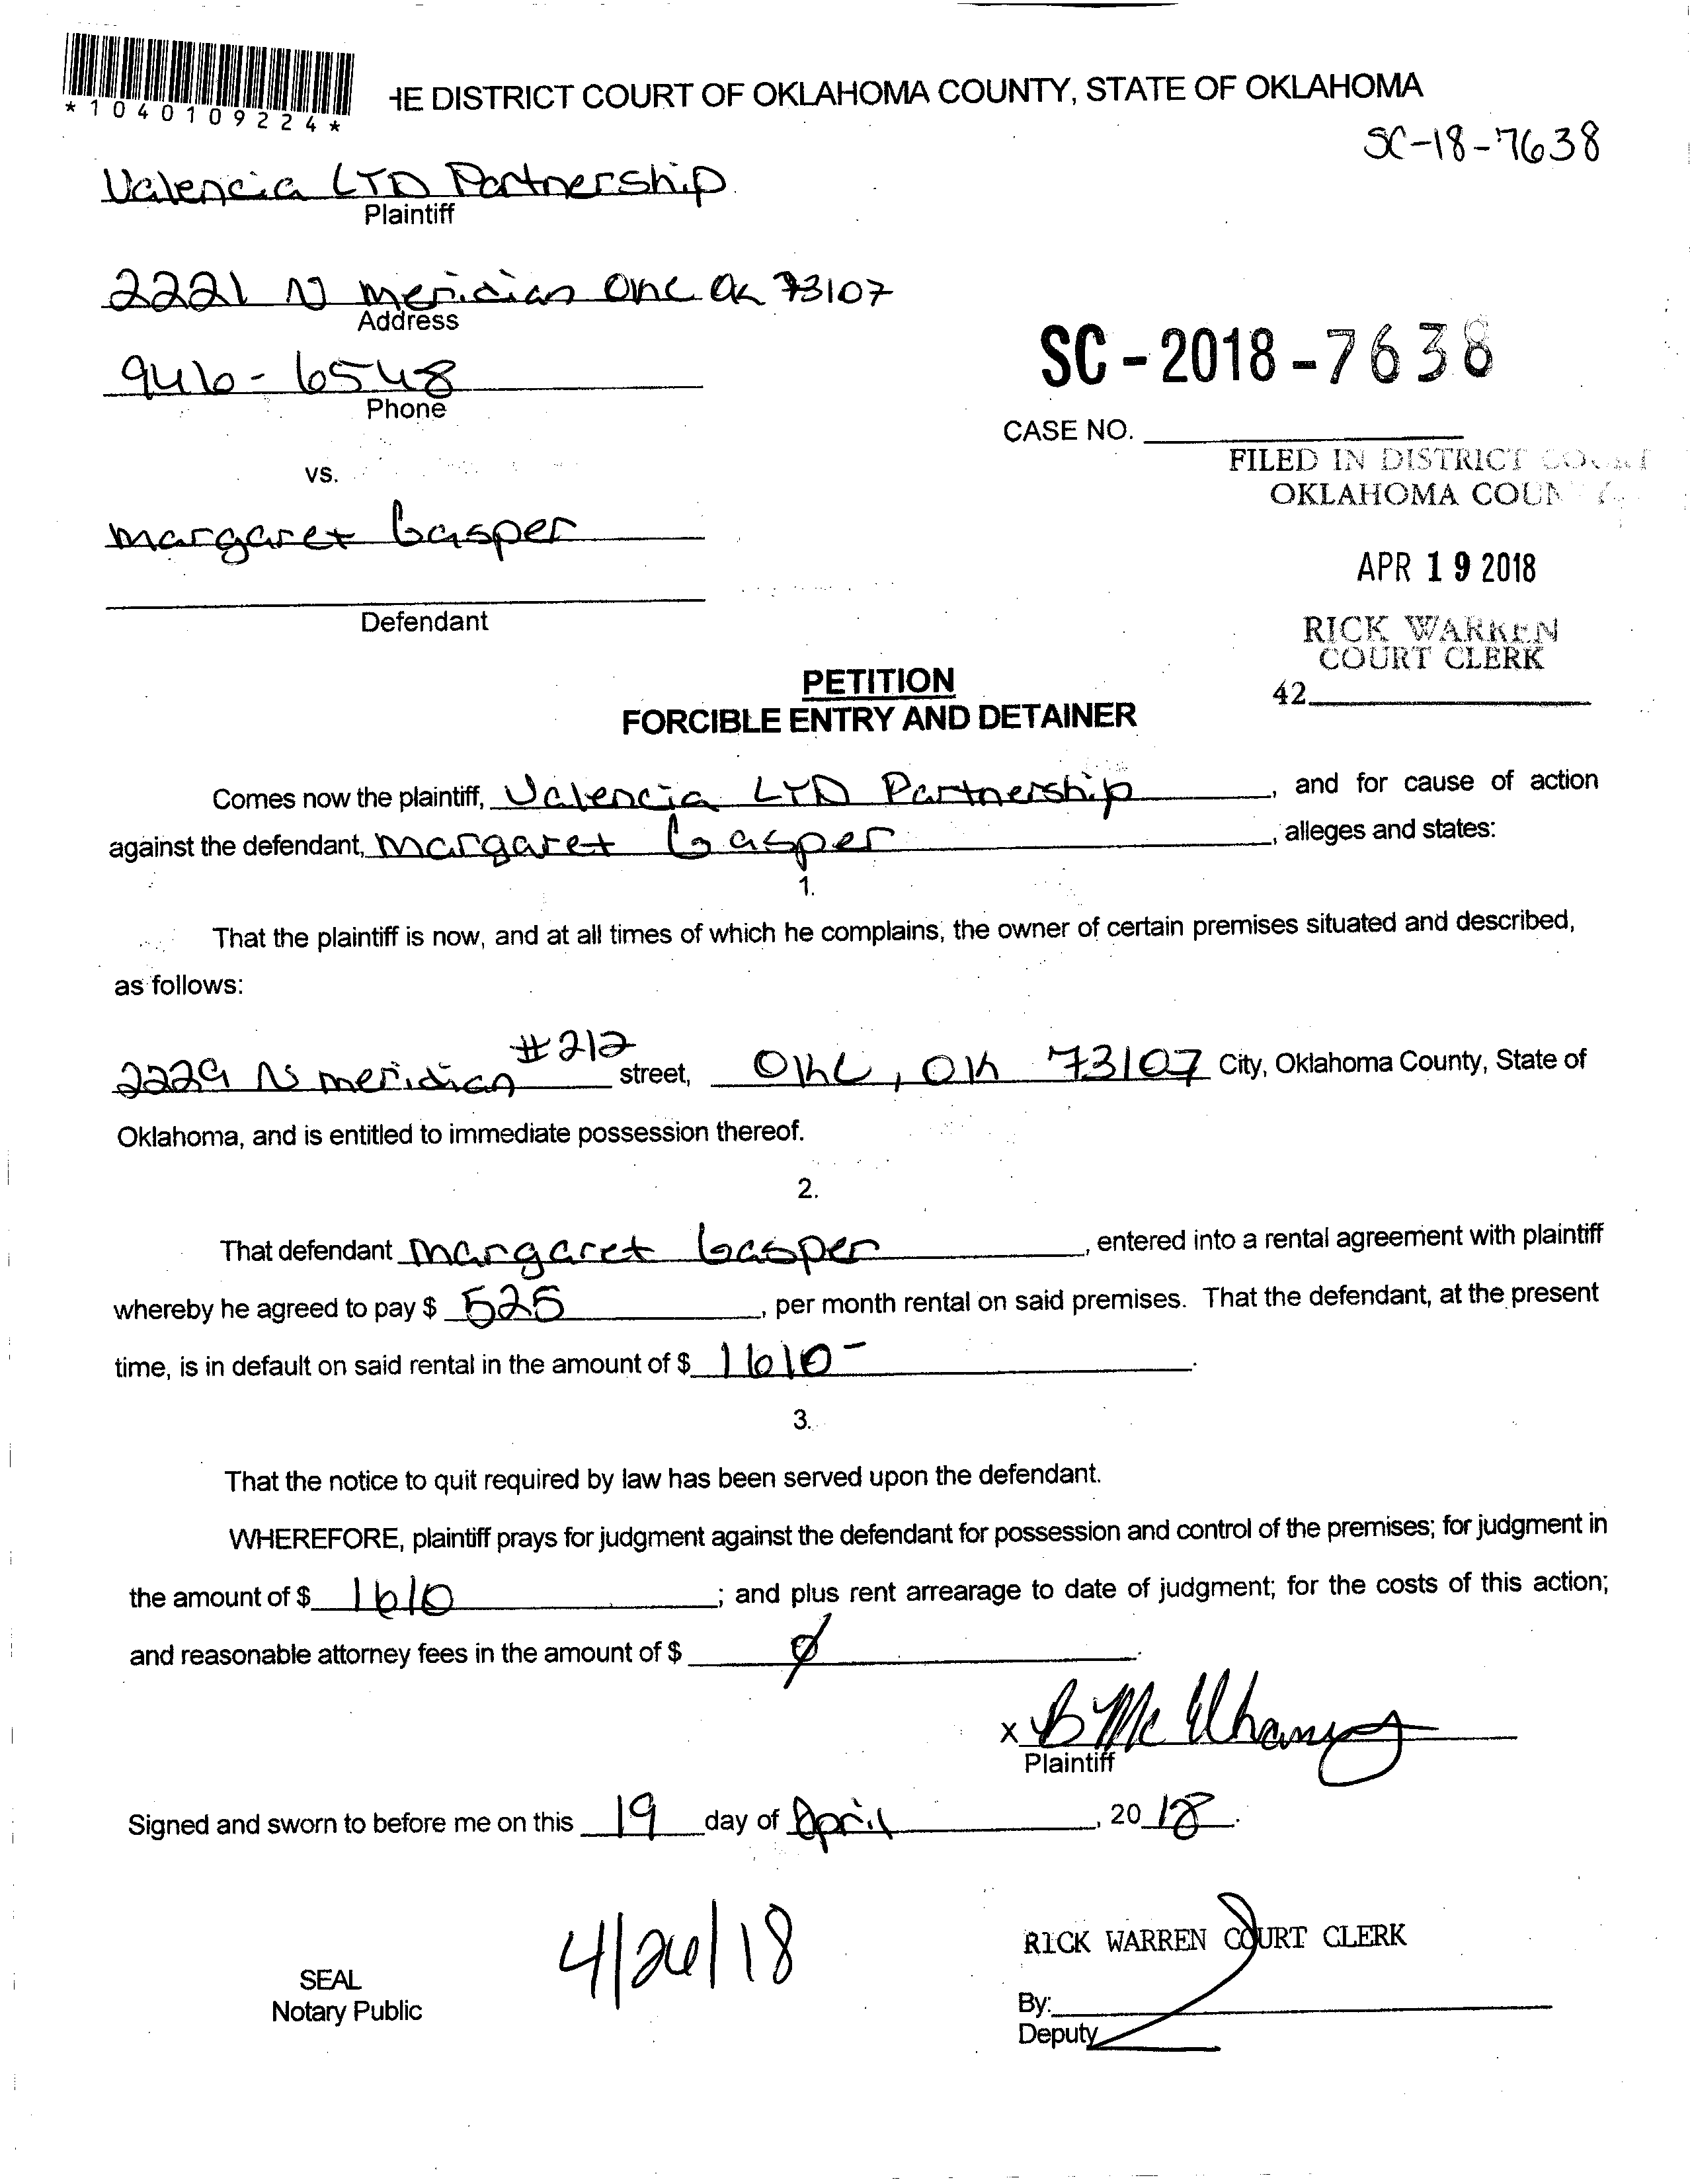 *1040109224*
HE DISTRICT COURT OF OKLAHOMA COUNTY, STATE OF OKLAHOMA
SC-18-7638
Valencia LTD Partnership
Plaintiff
2221 N Meridian OKC OK 73107
Address
946-6548
Phone
SC-2018-7638
CASE NO.
vs.
FILED IN DISTRICT COURT
OKLAHOMA COUNTY
margaret Gasper
APR 19 2018
Defendant
RICK WARREN
COURT CLERK
42
PETITION
FORCIBLE ENTRY AND DETAINER
Comes now the plaintiff, Valencia LTD Partnership, and for cause of action
against the defendant, margaret Gasper, alleges and states:
1.
That the plaintiff is now, and at all times of which he complains, the owner of certain premises situated and described,
as follows:
2229 N meridian #212 street, OKC, OK 73107 City, Oklahoma County, State of
Oklahoma, and is entitled to immediate possession thereof.
2.
That defendant margaret Gasper, entered into a rental agreement with plaintiff
whereby he agreed to pay $ 525, per month rental on said premises. That the defendant, at the present
time, is in default on said rental in the amount of $ 1610-.
3.
That the notice to quit required by law has been served upon the defendant.
WHEREFORE, plaintiff prays for judgment against the defendant for possession and control of the premises; for judgment in
the amount of $ 1610; and plus rent arrearage to date of judgment; for the costs of this action;
and reasonable attorney fees in the amount of $ 0.
x B McElhaney
Plaintiff
Signed and sworn to before me on this 19 day of April, 2018.
4/26/18
RICK WARREN COURT CLERK
SEAL
Notary Public
By:
Deputy